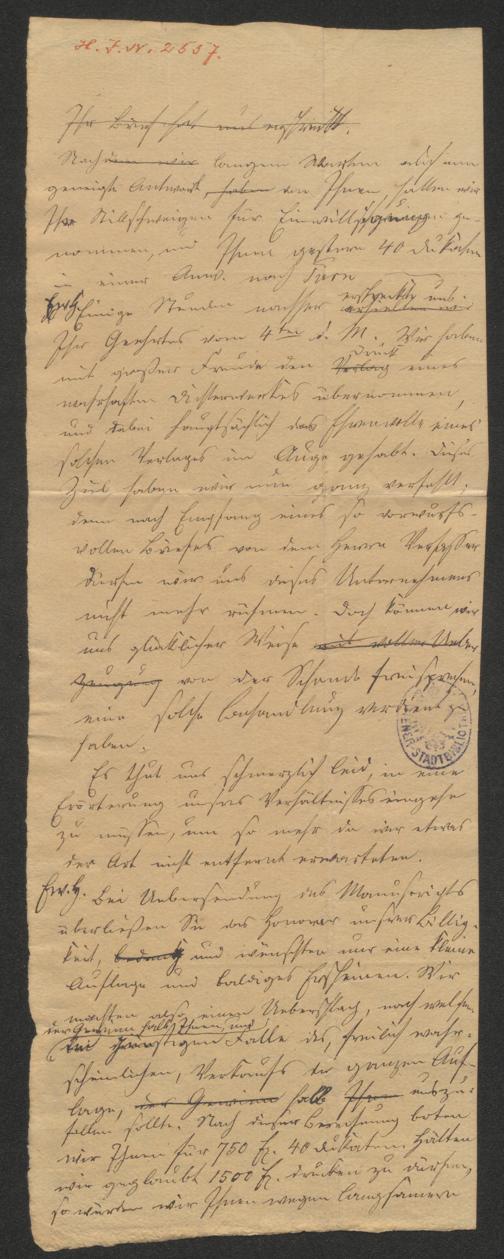 H. I. N. 2557.
Ihr Brief hat uns erschreckt.
Nach langem Warten auf eine
geneigte Antwort, haben von Ihnen, hatten wir
Ihr Stillschweigen für Einwilligung ge-
nommen, und Ihnen gestern 40 Dukaten
in einer Anw. nach
Einige Stunden nachher erhielten wir
Ihr Geehrtes vom 4ten d. M. Wir haben
mit großer Freude den Druck Verlag eines
wahrhaften Dichterwerkes übernommen,
und dabei hauptsächlich das Ehrenvolle eines
solchen Verlages im Auge gehabt. Dieses
Ziel haben wir nun ganz verfehlt;
denn nach Empfang eines so vorwurfs-
vollen Briefes von dem Herrn Verfasser
dürfen wir uns dieses Unternehmens
nicht mehr rühmen. Doch können wir
uns glücklicher Weise mit voller Ueber
zeugung von der Schande freisprechen,
eine solche Behandlung verdient zu
haben.
Es thut uns schmerzlich leid, in eine
Erörterung unsres Verhältnisses eingehn
zu müssen, um so mehr da wir etwas
der Art nicht entfernt erwarteten.
Ew. H. Bei Uebersendung des Manuscripts
überließen Sie das Honorar unsrer Billig-
keit, und wünschten nur eine kleine
Auflage und baldiges Erscheinen. Wir
machten also einen Ueberschlag, nach welchem
der Gewinn halb Ihnen, uns
bei günstigem Falle des, freilich wahr-
scheinlichen, Verkaufs der ganzen Auf-
lage, der Gewinn halb Ihnen uns zu-
fallen sollte. Nach dieser Berechnung boten
wir Ihnen für 750 Ex. 40 Dukaten. Hätten
wir geglaubt 1500 Ex. drucken zu dürfen,
so würden wir Ihnen wegen langsamern
WIENER STADTBIBLIOTHEK